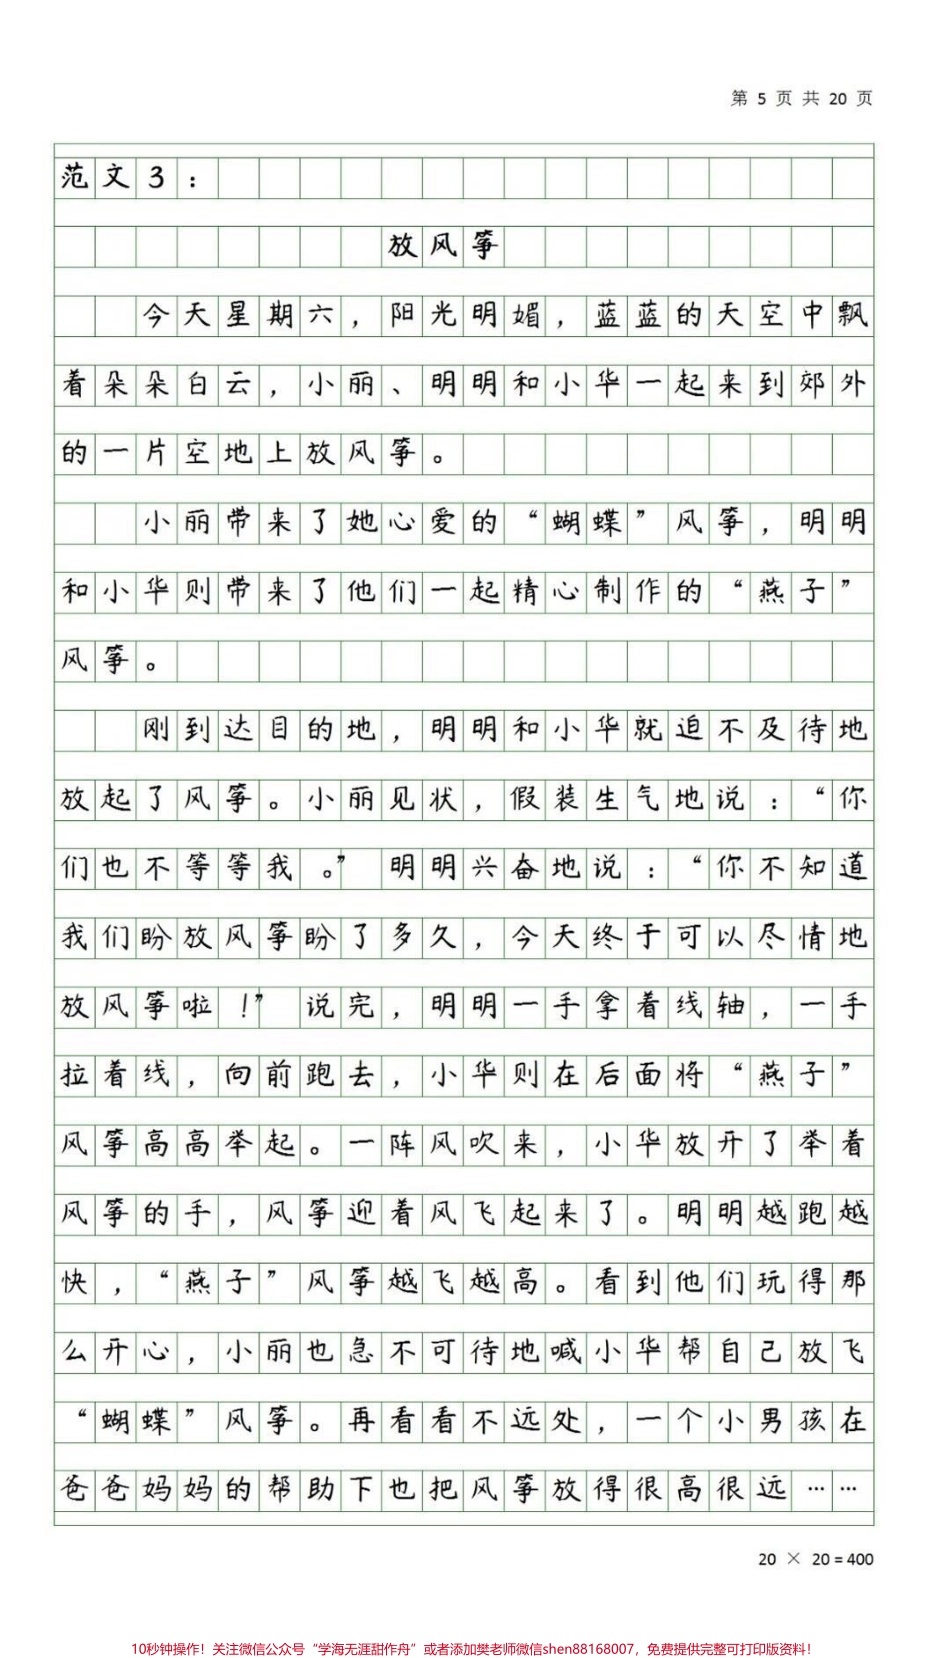 第 5 页 共 20 页
范文3：
放风筝
今天星期六，阳光明媚，蓝蓝的天空中飘
着朵朵白云，小丽、明明和小华一起来到郊外
的一片空地上放风筝。
小丽带来了她心爱的“蝴蝶”风筝，明明
和小华则带来了他们一起精心制作的“燕子”
风筝。
刚到达目的地，明明和小华就迫不及待地
放起了风筝。小丽见状，假装生气地说：“你
们也不等等我。”明明兴奋地说：“你不知道
我们盼放风筝盼了多久，今天终于可以尽情地
放风筝啦！”说完，明明一手拿着线轴，一手
拉着线，向前跑去，小华则在后面将“燕子”
风筝高高举起。一阵风吹来，小华放开了举着
风筝的手，风筝迎着风飞起来了。明明越跑越
快，“燕子”风筝越飞越高。看到他们玩得那
么开心，小丽也急不可待地喊小华帮自己放飞
“蝴蝶”风筝。再看看不远处，一个小男孩在
爸爸妈妈的帮助下也把风筝放得很高很远……
20 × 20＝400
10秒钟操作！关注微信公众号“学海无涯甜作舟”或者添加樊老师微信shen88168007，免费提供完整可打印版资料！